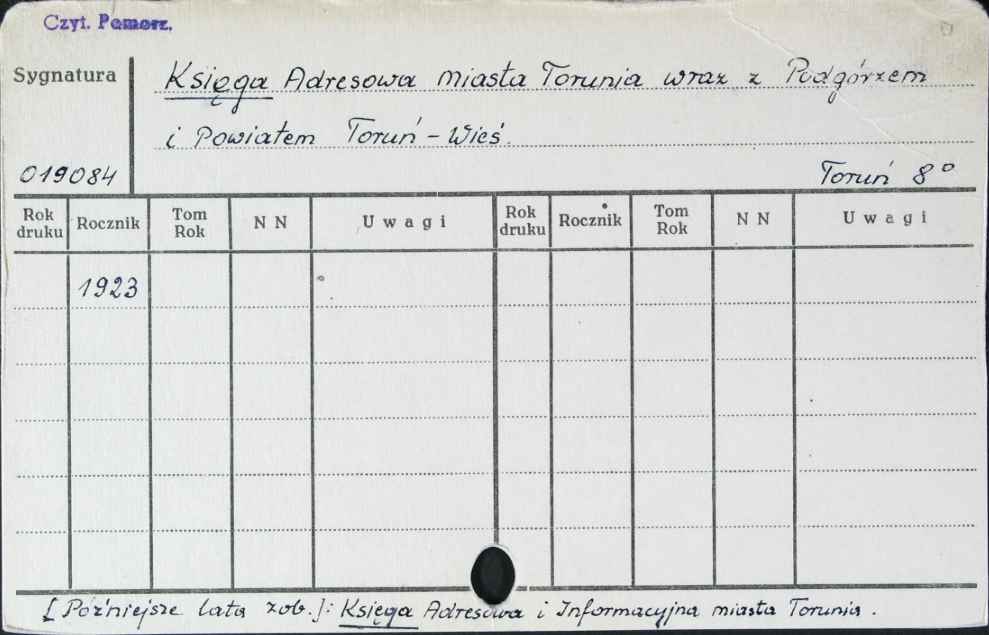 Czyt. Pomorz.
Sygnatura
Księga Adresowa miasta Torunia wraz z Podgórzem
i Powiatem Toruń - Wieś.
019084
Toruń 8°
Rok druku Rocznik Tom Rok N N Uwagi Rok druku Rocznik Tom Rok N N Uwagi
1923
[Późniejsze lata zob.]: Księga Adresowa i Informacyjna miasta Torunia.